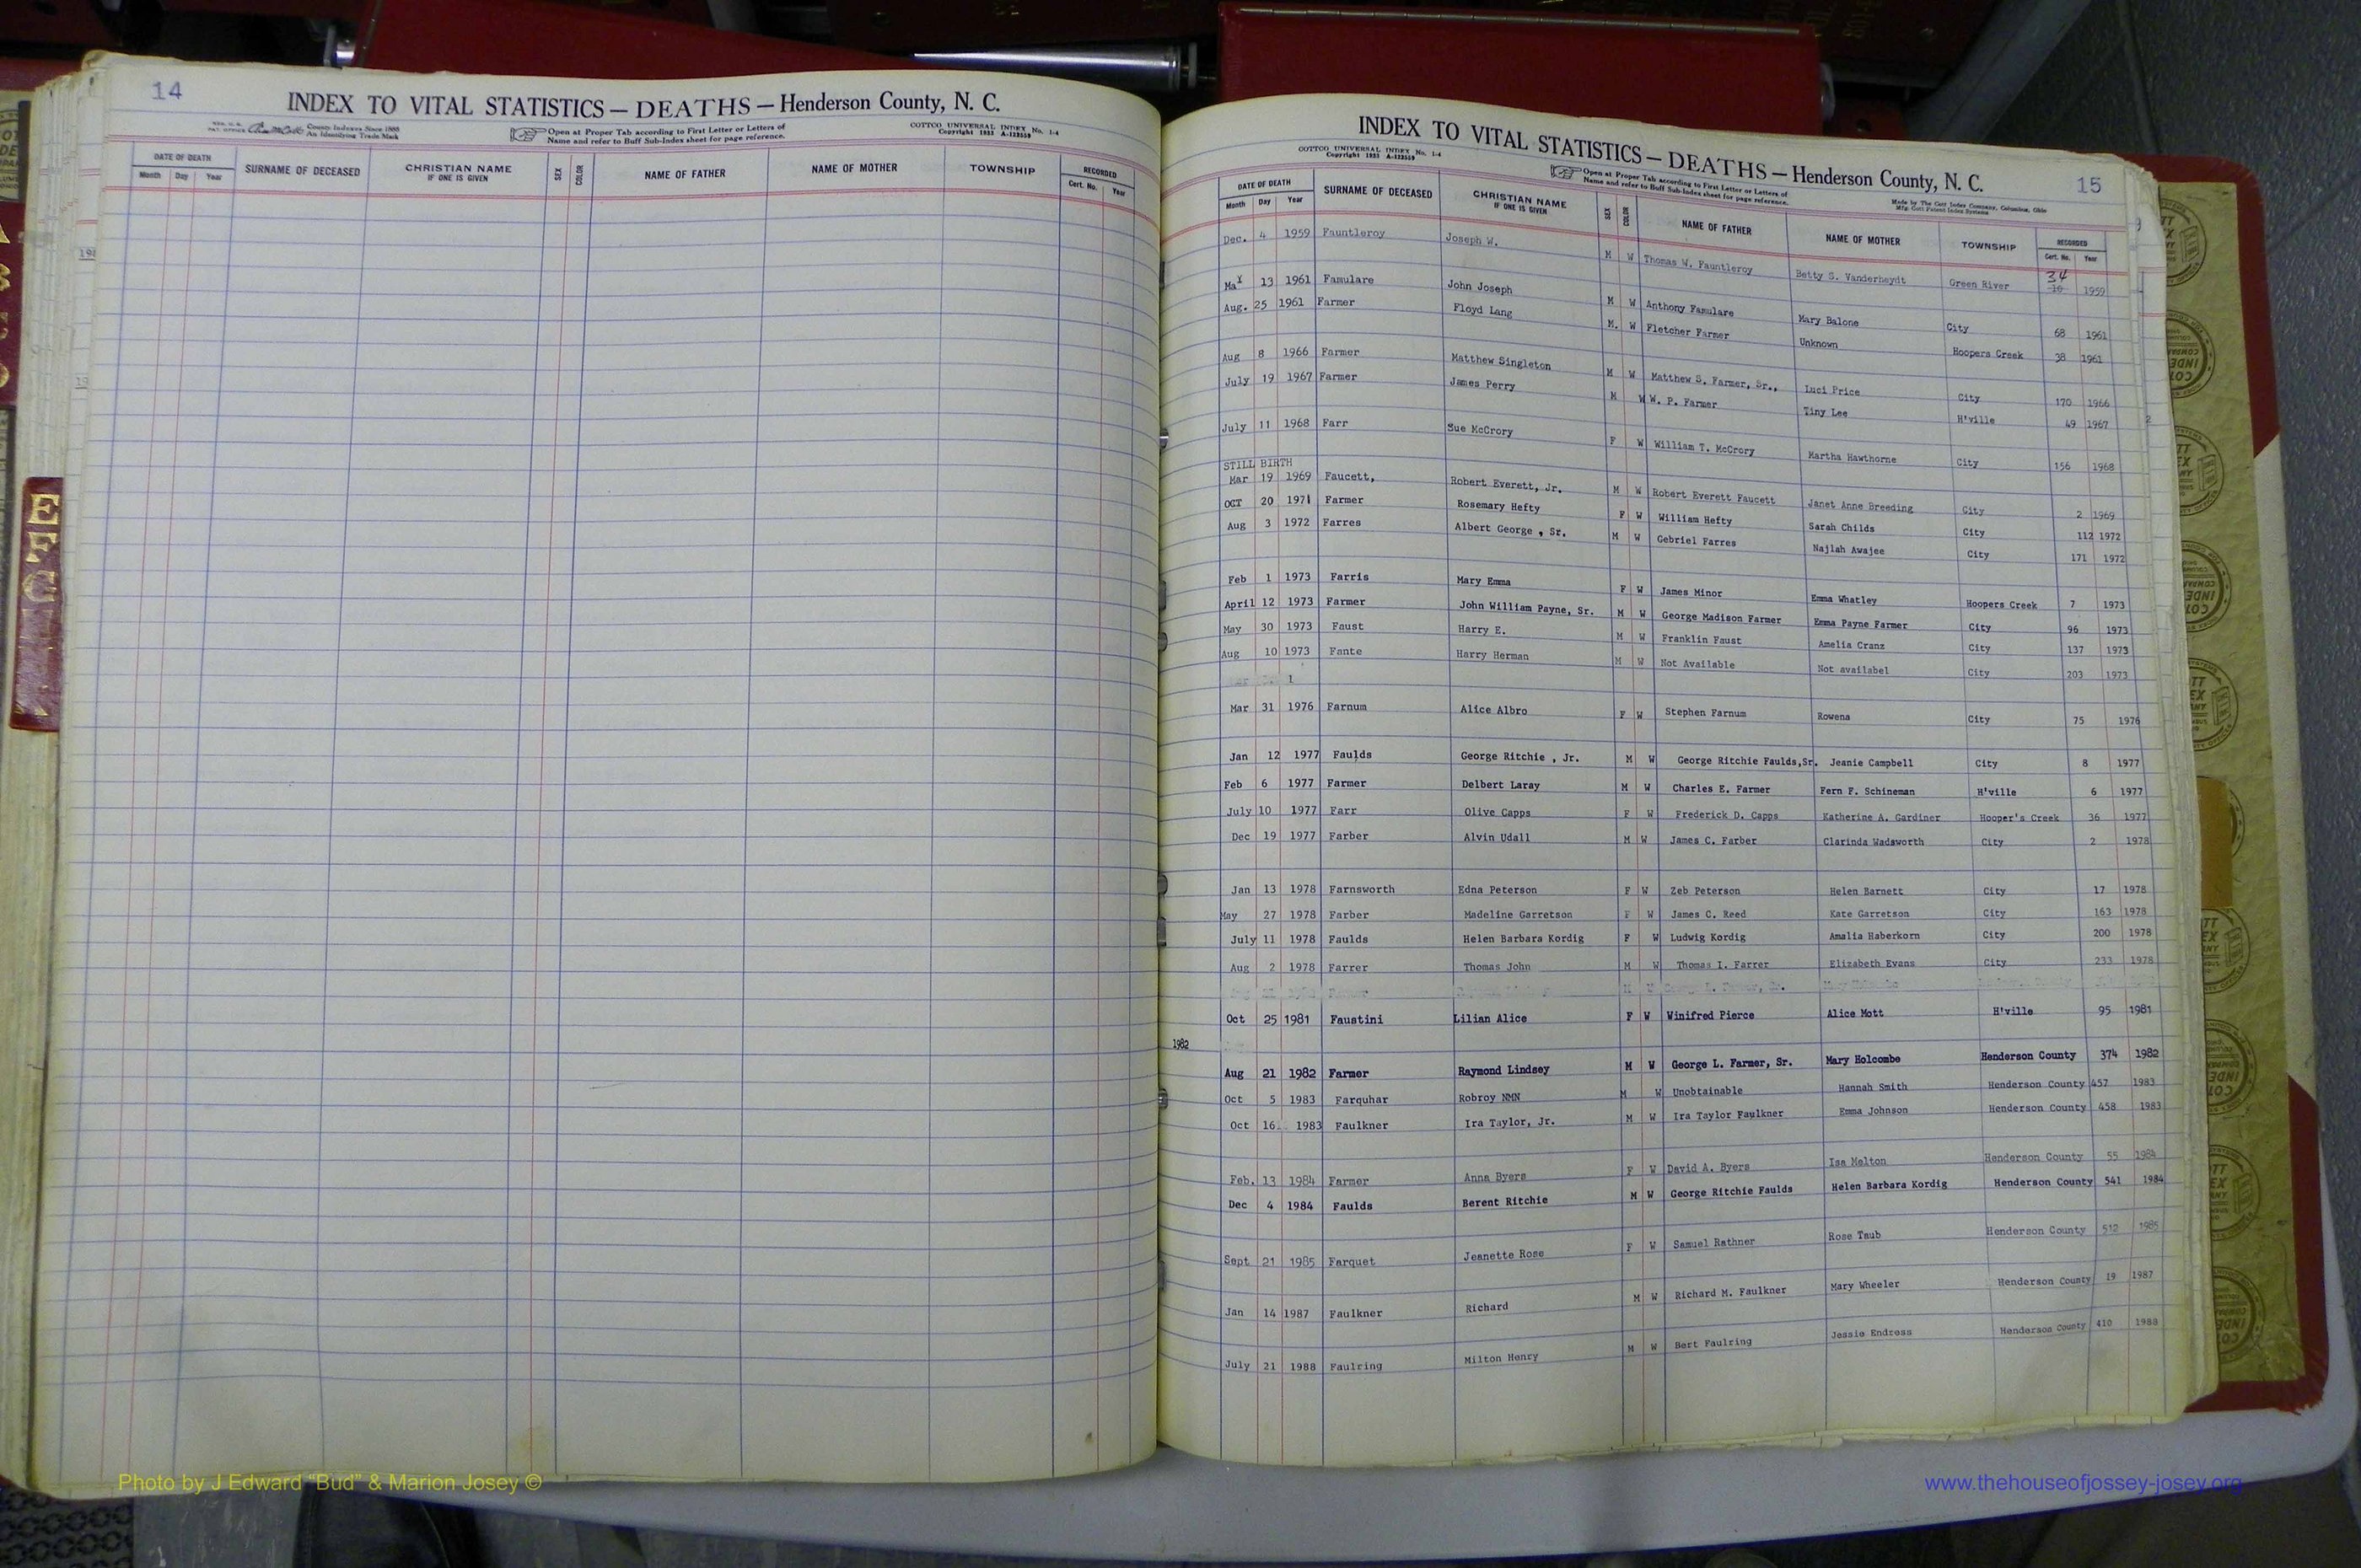 14
INDEX TO VITAL STATISTICS — DEATHS — Henderson County, N. C.
County Indexes Since 1888
An Identifying Trade Mark
Open at Proper Tab according to First Letter or Letters of
Name and refer to Buff Sub-Index sheet for page reference.
COTTCO UNIVERSAL INDEX No. 1-4
Copyright 1931 A-123559
DATE OF DEATH SURNAME OF DECEASED CHRISTIAN NAME IF ONE IS GIVEN SEX COLOR NAME OF FATHER NAME OF MOTHER TOWNSHIP RECORDED
Month Day Year Cert. No. Year
E
F
G
INDEX TO VITAL STATISTICS — DEATHS — Henderson County, N. C.
15
COTTCO UNIVERSAL INDEX No. 1-4
Copyright 1931 A-123559
Open at Proper Tab according to First Letter or Letters of
Name and refer to Buff Sub-Index sheet for page reference.
Made by The Cott Index Company, Columbus, Ohio
Mfg. Cott Patent Index Systems
DATE OF DEATH SURNAME OF DECEASED CHRISTIAN NAME IF ONE IS GIVEN SEX COLOR NAME OF FATHER NAME OF MOTHER TOWNSHIP RECORDED
Month Day Year Cert. No. Year
Dec. 4 1959 Fauntleroy Joseph W. M W Thomas W. Fauntleroy Betty S. Vanderheydt Green River 34 1959
May 13 1961 Famulare John Joseph M W Anthony Famulare Mary Balone City 68 1961
Aug. 25 1961 Farmer Floyd Lang M. W Fletcher Farmer Unknown Hoopers Creek 38 1961
Aug 8 1966 Farmer Matthew Singleton M W Matthew S. Farmer, Sr., Luci Price City 170 1966
July 19 1967 Farmer James Perry M W W. P. Farmer Tiny Lee H'ville 49 1967
July 11 1968 Farr Sue McCrory F W William T. McCrory Martha Hawthorne City 156 1968
STILL BIRTH
Mar 19 1969 Faucett, Robert Everett, Jr. M W Robert Everett Faucett Janet Anne Breeding City 2 1969
OCT 20 1971 Farmer Rosemary Hefty F W William Hefty Sarah Childs City 112 1972
Aug 3 1972 Farres Albert George , Sr. M W Gebriel Farres Najlah Awajee City 171 1972
Feb 1 1973 Farris Mary Emma F W James Minor Emma Whatley Hoopers Creek 7 1973
April 12 1973 Farmer John William Payne, Sr. M W George Madison Farmer Emma Payne Farmer City 96 1973
May 30 1973 Faust Harry E. M W Franklin Faust Amelia Cranz City 137 1973
Aug 10 1973 Fante Harry Herman M W Not Available Not availabel City 203 1973
1
Mar 31 1976 Farnum Alice Albro F W Stephen Farnum Rowena City 75 1976
Jan 12 1977 Faulds George Ritchie , Jr. M W George Ritchie Faulds,Sr. Jeanie Campbell City 8 1977
Feb 6 1977 Farmer Delbert Laray M W Charles E. Farmer Fern F. Schineman H'ville 6 1977
July 10 1977 Farr Olive Capps F W Frederick D. Capps Katherine A. Gardiner Hooper's Creek 36 1977
Dec 19 1977 Farber Alvin Udall M W James C. Farber Clarinda Wadsworth City 2 1978
Jan 13 1978 Farnsworth Edna Peterson F W Zeb Peterson Helen Barnett City 17 1978
May 27 1978 Farber Madeline Garretson F W James C. Reed Kate Garretson City 163 1978
July 11 1978 Faulds Helen Barbara Kordig F W Ludwig Kordig Amalia Haberkorn City 200 1978
Aug 2 1978 Farrer Thomas John M W Thomas I. Farrer Elizabeth Evans City 233 1978
Oct 25 1981 Faustini Lilian Alice F W Winifred Pierce Alice Mott H'ville 95 1981
1982
Aug 21 1982 Farmer Raymond Lindsey M W George L. Farmer, Sr. Mary Holcombe Henderson County 374 1982
Oct 5 1983 Farquhar Robroy NMN M W Unobtainable Hannah Smith Henderson County 457 1983
Oct 16 1983 Faulkner Ira Taylor, Jr. M W Ira Taylor Faulkner Emma Johnson Henderson County 458 1983
Feb. 13 1984 Farmer Anna Byers F W David A. Byers Isa Melton Henderson County 55 1984
Dec 4 1984 Faulds Berent Ritchie M W George Ritchie Faulds Helen Barbara Kordig Henderson County 541 1984
Sept 21 1985 Farquet Jeanette Rose F W Samuel Rathner Rose Taub Henderson County 512 1985
Jan 14 1987 Faulkner Richard M W Richard M. Faulkner Mary Wheeler Henderson County 19 1987
July 21 1988 Faulring Milton Henry M W Bert Faulring Jessie Endress Henderson County 410 1988
Photo by J Edward “Bud” & Marion Josey ©
www.thehouseofjossey-josey.org